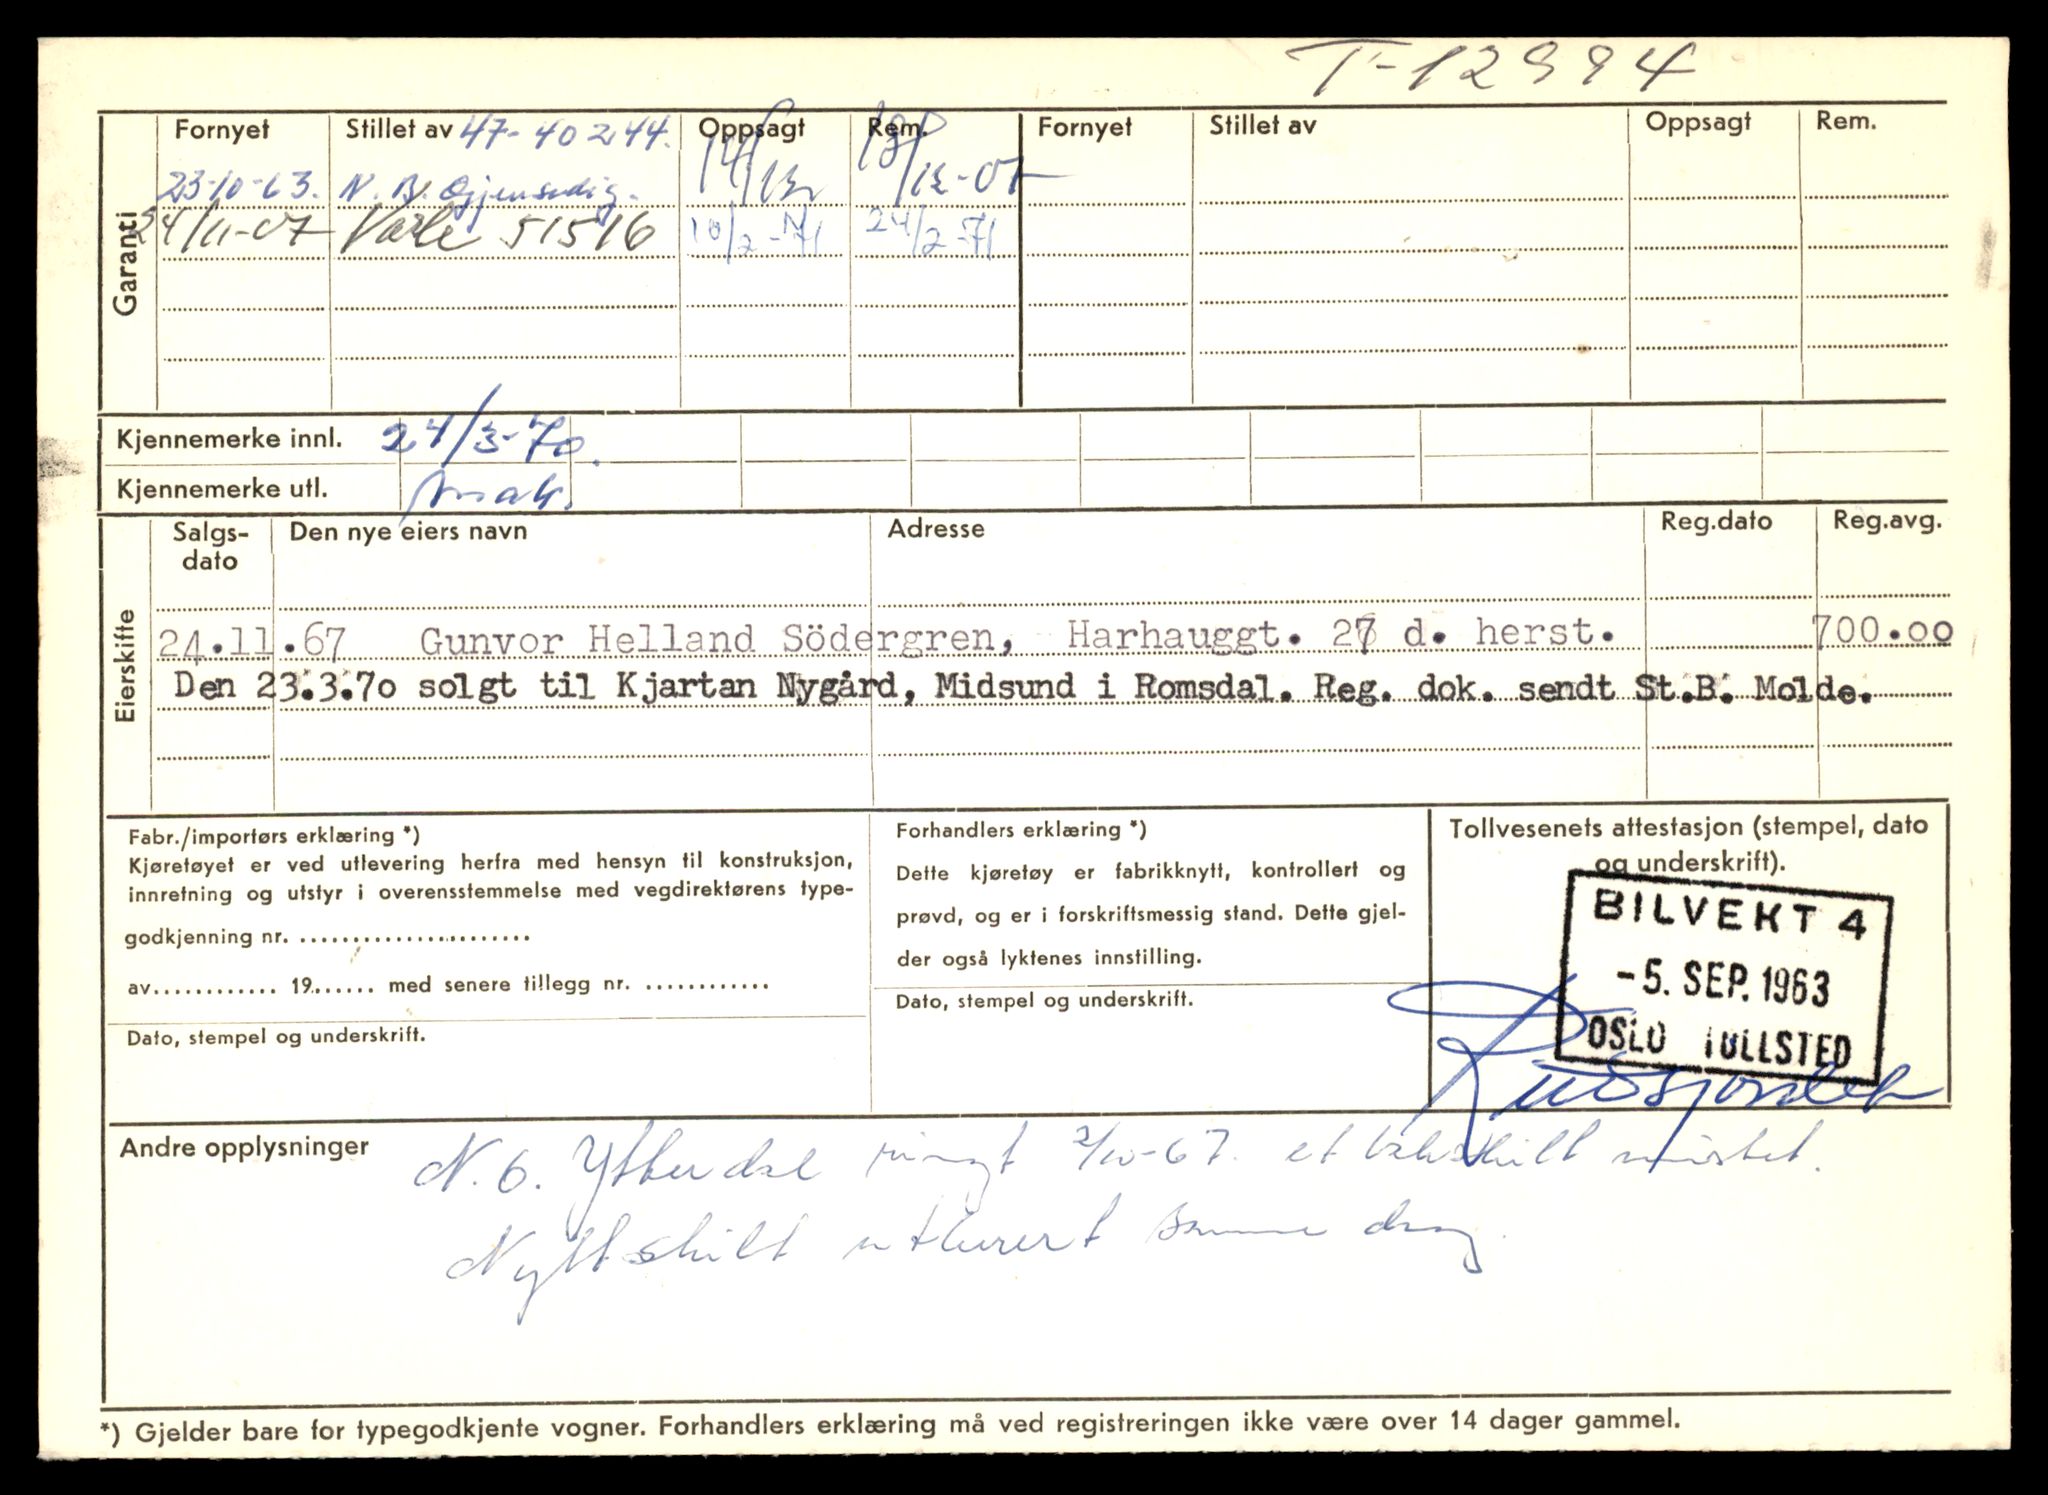 T-12994
Garanti
Fornyet Stillet av 47-40244. Oppsagt Rem. Fornyet Stillet av Oppsagt Rem.
23-10-63. N. B. Gjensidig. 14/12 18/12-67
24/11-67 51516 10/2-71 24/2-71
Kjennemerke innl. 24/3-70.
Kjennemerke utl.
Eierskifte
Salgs-dato Den nye eiers navn Adresse Reg.dato Reg.avg.
24.11.67 Gunvor Helland Södergren, Harhauggt. 27 d. herst. 700.00
Den 23.3.70 solgt til Kjartan Nygård, Midsund i Romsdal. Reg. dok. sendt St.B. Molde.
Fabr./importørs erklæring *)
Kjøretøyet er ved utlevering herfra med hensyn til konstruksjon,
innretning og utstyr i overensstemmelse med vegdirektørens type-
godkjenning nr. ......................
av............ 19...... med senere tillegg nr. ............
Dato, stempel og underskrift.
Forhandlers erklæring *)
Dette kjøretøy er fabrikknytt, kontrollert og
prøvd, og er i forskriftsmessig stand. Dette gjel-
der også lyktenes innstilling.
Dato, stempel og underskrift.
Tollvesenets attestasjon (stempel, dato
og underskrift).
BILVEKT 4
-5. SEP. 1963
OSLO TOLLSTED
Andre opplysninger
N.O. Ytterdal ringt 2/10-67. et bakskilt mistet.
Nytt skilt utlevert samme dag.
*) Gjelder bare for typegodkjente vogner. Forhandlers erklæring må ved registreringen ikke være over 14 dager gammel.